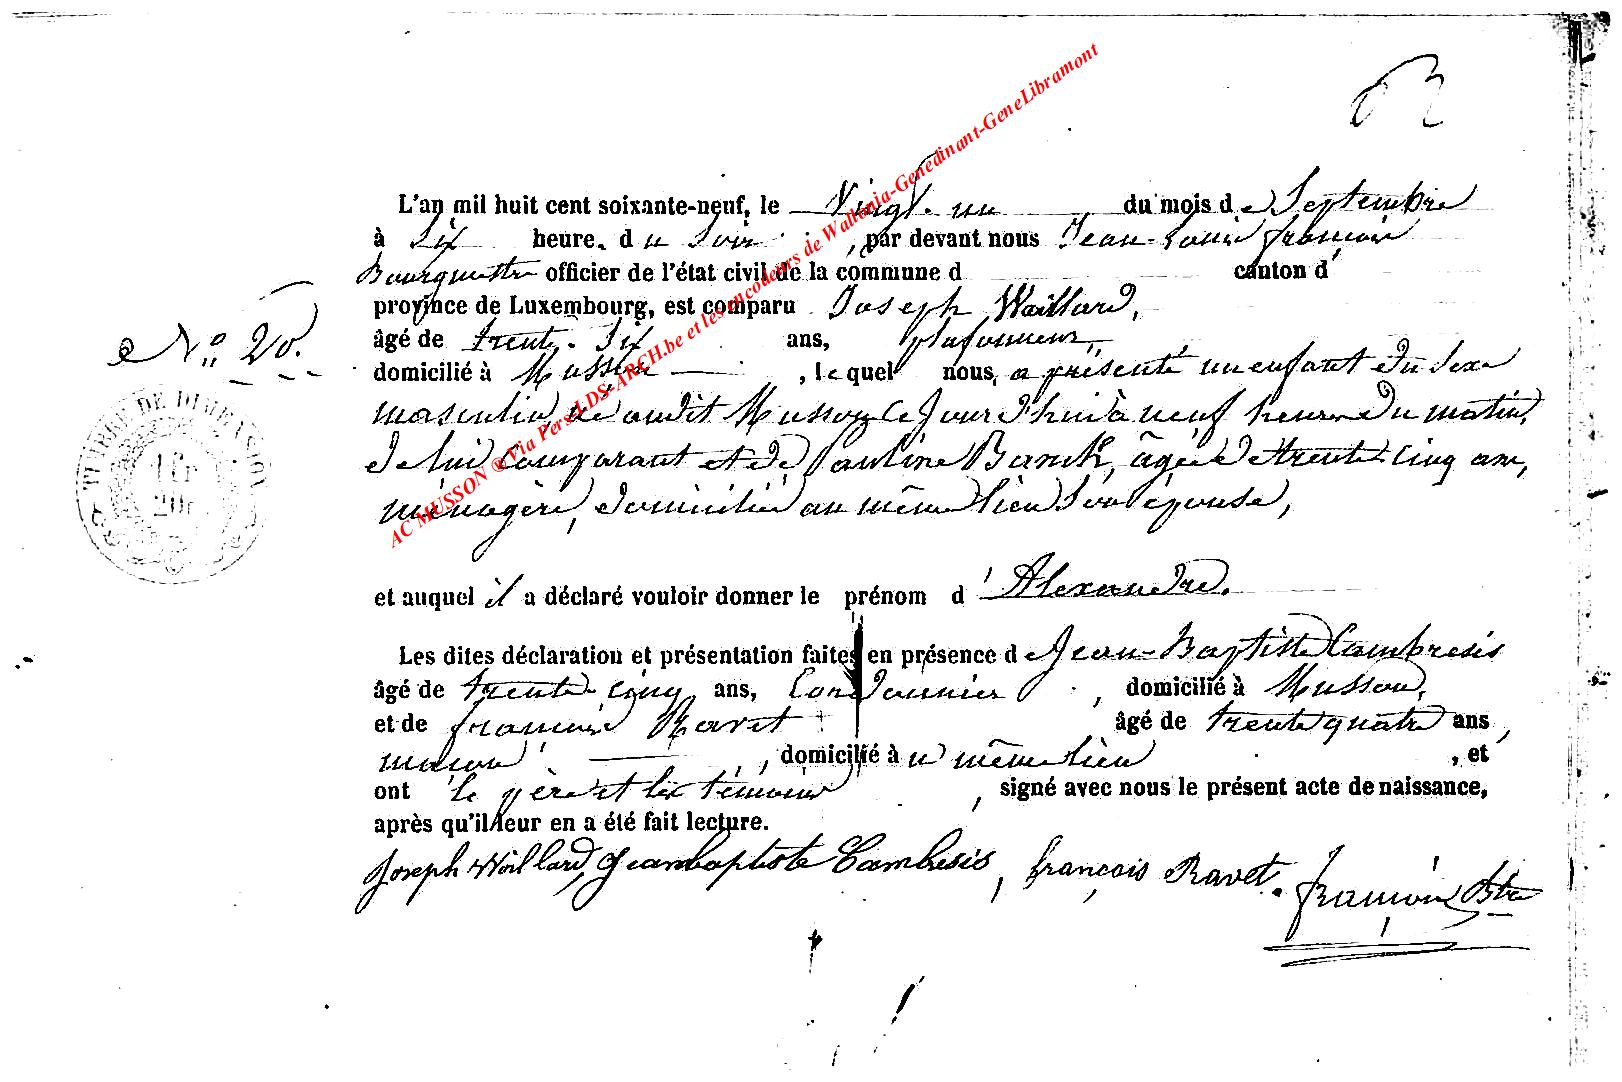 L'an mil huit cent soixante-neuf, le Vingt-un du mois de Septembre
à Six heure. du Soir, par devant nous Jean-Louis françois
Bourgmestre officier de l'état civil de la commune d canton d'
province de Luxembourg, est comparu Joseph Waillard,
âgé de trente-Six ans, plafonneur,
domicilié à Musson, lequel nous, a présenté un enfant du Sexe
masculin, né audit Musson ce jourd'hui à neuf heures du matin,
de lui comparant et de Pauline Barck, âgée de trente-Cinq ans,
ménagère, domiciliée au même lieu Son épouse,
et auquel il a déclaré vouloir donner le prénom d'Alexandre.
Les dites déclaration et présentation faites en présence de Jean-Baptiste Cambresis
âgé de trente-cinq ans, Cordonnier, domicilié à Musson,
et de françois Ravet âgé de trente quatre ans,
maçon, domicilié au même lieu, et
ont le père et les témoins, signé avec nous le présent acte de naissance,
après qu'il leur en a été fait lecture.
Joseph Woillard, Jeanbaptiste Cambresis, françois Ravet. françois Btre
N° 20.
TIMBRE DE DIMENSION
1fr
20c
AC MUSSON ® Via Pers-LDS-ARCH.be et les encodeurs de Wallonia-Genedinant-GeneLibramont